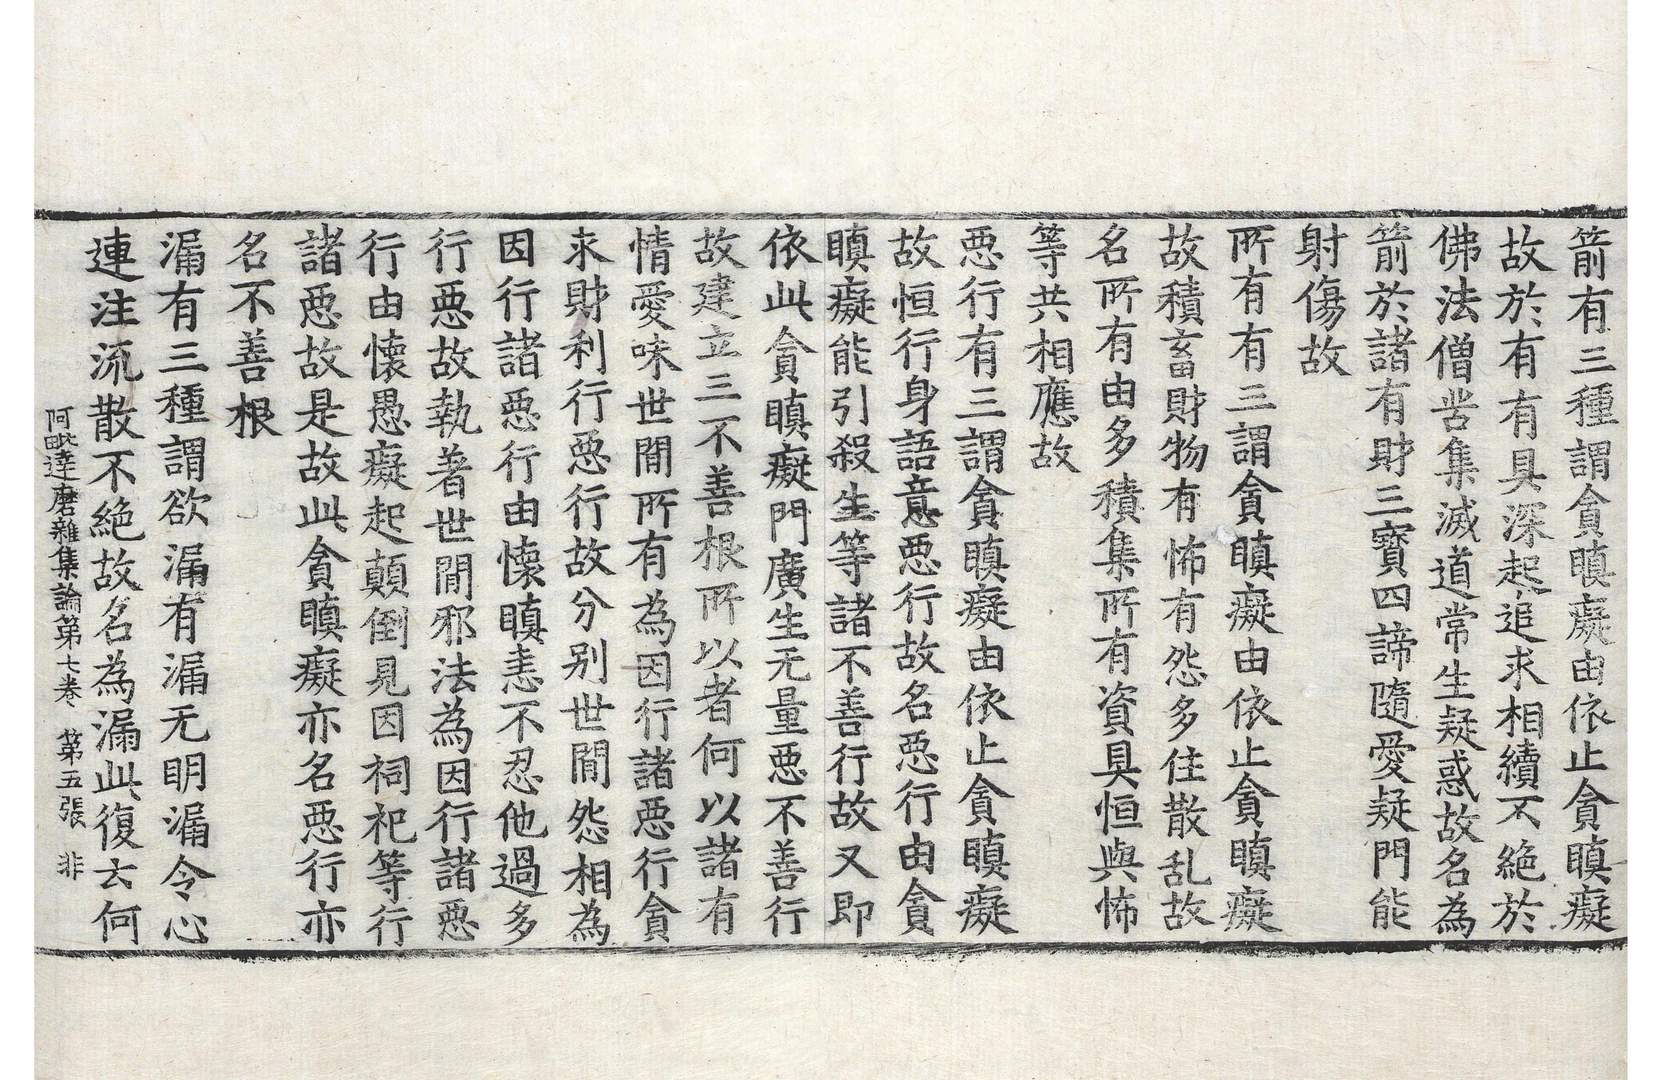 箭有三種謂貪瞋癡由依止貪瞋癡
故於有有具深起追求相續不絶於
佛法僧苦集滅道常生疑惑故名為
箭於諸有財三寶四諦隨愛疑門能
射傷故
所有有三謂貪瞋癡由依止貪瞋癡
故積畜財物有怖有怨多住散乱故
名所有由多積集所有資具恒與怖
等共相應故
惡行有三謂貪瞋癡由依止貪瞋癡
故恒行身語意惡行故名惡行由貪
瞋癡能引殺生等諸不善行故又即
依此貪瞋癡門廣生无量惡不善行
故建立三不善根所以者何以諸有
情愛味世間所有為因行諸惡行貪
求財利行惡行故分別世間怨相為
因行諸惡行由懷瞋恚不忍他過多
行惡故執著世間邪法為因行諸惡
行由懷愚癡起顛倒見因祠祀等行
諸惡故是故此貪瞋癡亦名惡行亦
名不善根
漏有三種謂欲漏有漏无明漏令心
連注流散不絶故名為漏此復云何
阿毗達磨雜集論第七卷 第五張 非